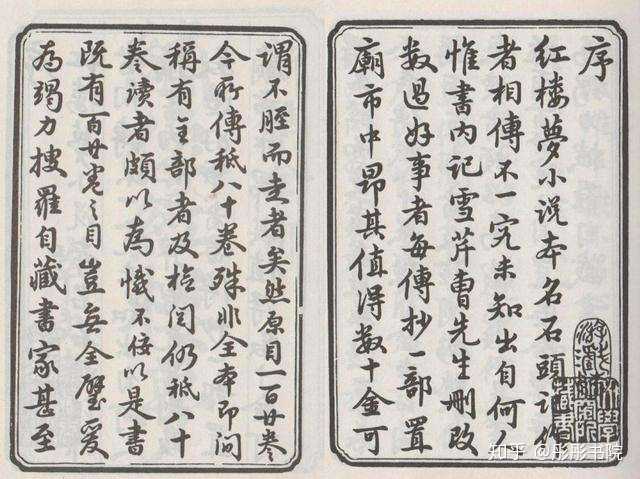 序
红楼夢小説本名石頭记作
者相傳不一究未知出自何人
惟書内记雪芹曹先生刪改
数過好事者每傳抄一部置
廟市中昂其值得数十金可
謂不脛而走者矣然原目一百廿卷
今所傳祗八十卷殊非全本即间
稱有全部者及檢阅仍祗八十
卷讀者頗以為憾不佞以是書
既有百廿卷之目豈无全璧爰
為竭力搜羅自藏書家甚至
知乎 @彤彤书院